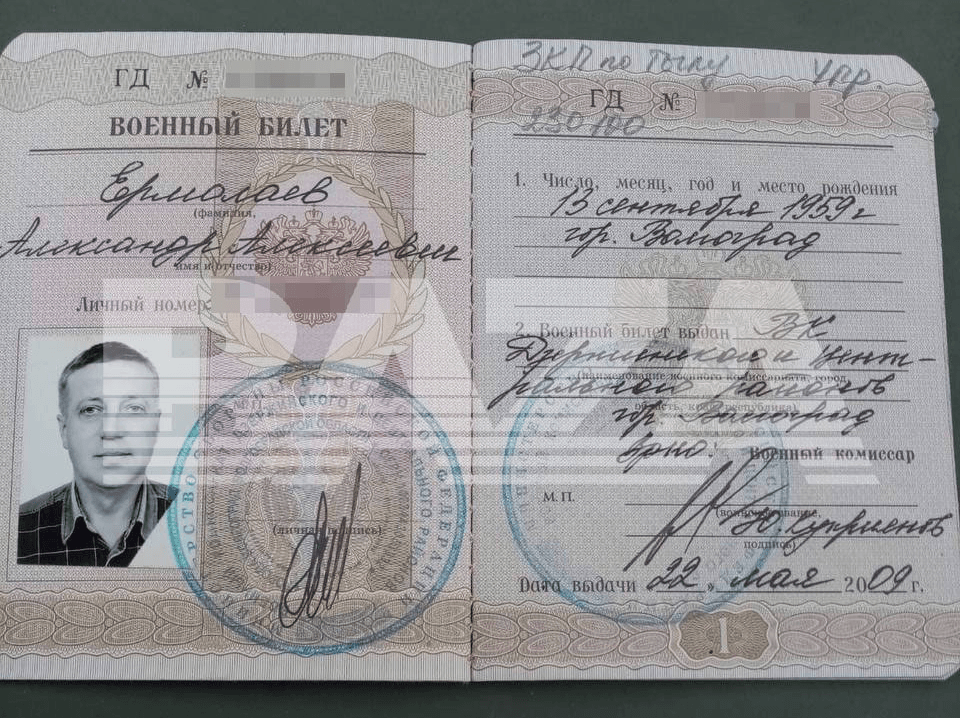 ГД №
ВОЕННЫЙ БИЛЕТ
Ермолаев
(фамилия,
Александр Алексеевич
имя и отчество)
Личный номер
(личная подпись)
ЗКП по Тылу Упр.
ГД №
230100
1. Число, месяц, год и место рождения
13 сентября 1959г
гор. Волгоград
2. Военный билет выдан ВК
Дзержинского и Цент-
(наименование военного комиссариата, город,
рального районов
область, край, республика)
гор. Волгоград
Врио. Военный комиссар
М. П.
(воинское звание,
подпись)
Дата выдачи 22 „ мая 2009 г.
1